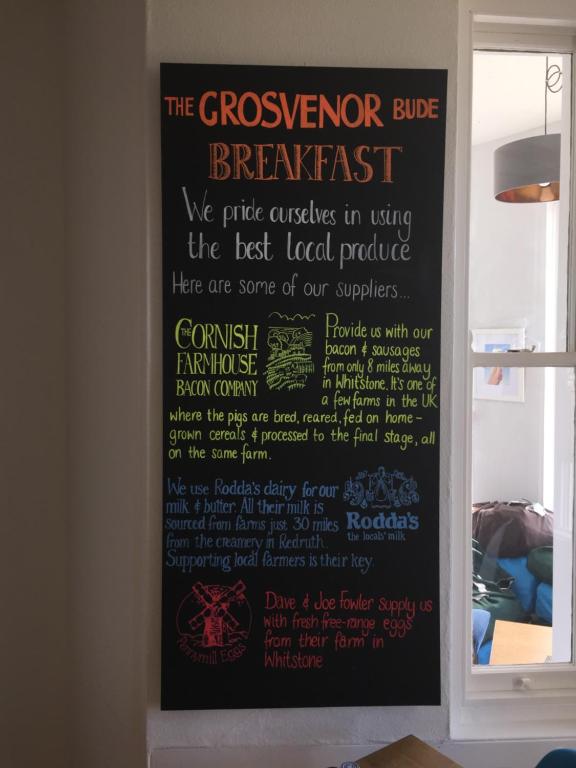 THE GROSVENOR BUDE
BREAKFAST
We pride ourselves in using
the best local produce
Here are some of our suppliers...
THE CORNISH
FARMHOUSE
BACON COMPANY
Provide us with our
bacon & sausages
from only 8 miles away
in Whitstone. It's one of
a few farms in the UK
where the pigs are bred, reared, fed on home-
grown cereals & processed to the final stage, all
on the same farm.
We use Rodda's dairy for our
milk & butter. All their milk is
sourced from farms just 30 miles
from the creamery in Redruth.
Supporting local farmers is their key.
Rodda's
the locals' milk
Pennymill Eggs
Dave & Joe Fowler supply us
with fresh free-range eggs
from their farm in
Whitstone